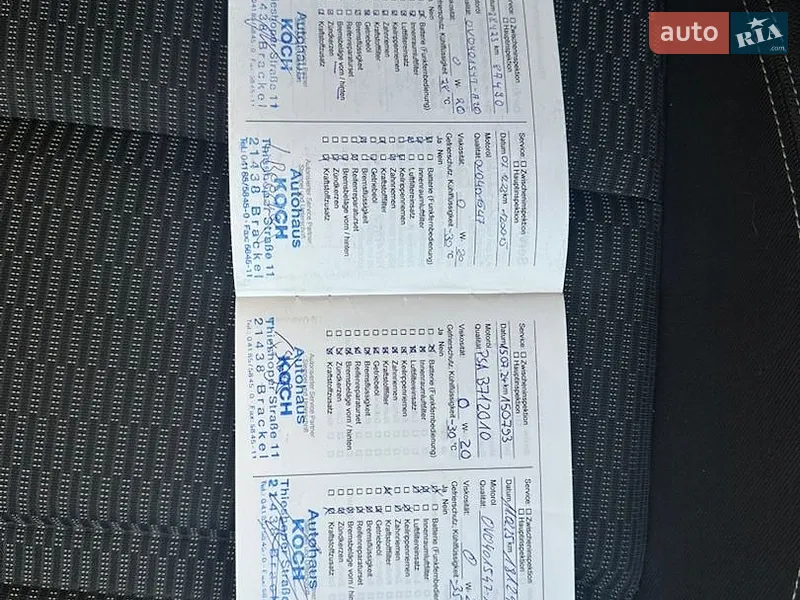 auto RIA.com
Service: Zwischeninspektion
Hauptinspektion
km 87430
Motoröl
Qualität: OV0401547-A20
Viskosität: 0 W- 20
Gefrierschutz, Kühlflüssigkeit -28 °C
Ja Nein
Batterie (Funkfernbedienung)
Innenraumluftfilter
Luftfiltereinsatz
Keilrippenriemen
Zahnriemen
Kraftstofffilter
Getriebeöl
Bremsflüssigkeit
Reifenreparaturset
Bremsbeläge vorn / hinten
Zündkerzen
Kraftstoffzusatz
Autohaus
KOCH
Thieshoper Straße 11
21438 Brackel
Service: Zwischeninspektion
Hauptinspektion
Datum km
Motoröl
Qualität OV0401547
Viskosität: 0 W- 20
Gefrierschutz, Kühlflüssigkeit -30 °C
Ja Nein
Batterie (Funkfernbedienung)
Innenraumluftfilter
Luftfiltereinsatz
Keilrippenriemen
Zahnriemen
Kraftstofffilter
Getriebeöl
Bremsflüssigkeit
Reifenreparaturset
Bremsbeläge vorn / hinten
Zündkerzen
Kraftstoffzusatz
Autorisierter Service Partner
Autohaus
KOCH
Thieshoper Straße 11
21438 Brackel
Tel. 04185/5845-0 · Fax 5845-11
Service: Zwischeninspektion
Hauptinspektion
Datum 15.07.24 km 150793
Motoröl
Qualität: PSA B712010
Viskosität: 0 W- 20
Gefrierschutz, Kühlflüssigkeit -30 °C
Ja Nein
Batterie (Funkfernbedienung)
Innenraumluftfilter
Luftfiltereinsatz
Keilrippenriemen
Zahnriemen
Kraftstofffilter
Getriebeöl
Bremsflüssigkeit
Reifenreparaturset
Bremsbeläge vorn / hinten
Zündkerzen
Kraftstoffzusatz
Autorisierter Service Partner
Autohaus
KOCH
Thieshoper Straße 11
21438 Brackel
Tel. 04185/5845-0 Fax 5845-11
Service: Zwischeninspektion
Hauptinspektion
Datum km
Motoröl
Qualität: OV0401547-
Viskosität: 0 W-
Gefrierschutz, Kühlflüssigkeit
Ja Nein
Batterie (Funkfernbedien
Innenraumluftfilter
Luftfiltereinsatz
Keilrippenriemen
Zahnriemen
Kraftstofffilter
Getriebeöl
Bremsflüssigkeit
Reifenreparaturset
Bremsbeläge vorn / hint
Zündkerzen
Kraftstoffzusatz
Autohaus
KOCH
Thieshoper Straße
21438 Brac